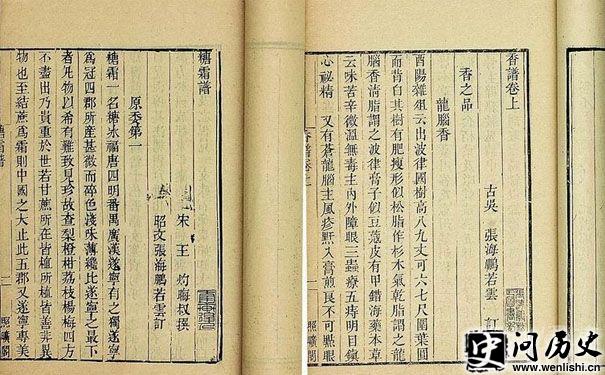 香譜卷上
古吳 張海鵬若雲 訂
香之品
龍腦香
酉陽雜俎云出波律國樹高八九丈可六七尺圍葉圓
而背白其樹有肥瘦形似松脂作杉木氣乾脂謂之龍
腦香清脂謂之波律膏子似豆蔻皮有甲錯海藥本草
云味苦辛微溫無毒主內外障眼三蟲療五痔明目鎮
心祕精 又有蒼龍腦主風疹入膏煎良不可點眼
糖霜譜
宋 王 灼晦叔撰
昭文張海鵬若雲訂
原委第一
糖霜一名糖冰福唐四明番禺廣漢遂寧有之獨遂寧
爲冠四郡所產甚微而碎色淺味薄纔比遂寧之最下
者凡物以希有難致見珍故查梨橙柑荔枝楊梅四方
不盡出乃貴重於世若甘蔗所在皆植所植皆善非異
物也至結蔗爲霜則中國之大止此五郡又遂寧專美
糖霜譜
一
照曠閣
问历史
www.wenlishi.cn